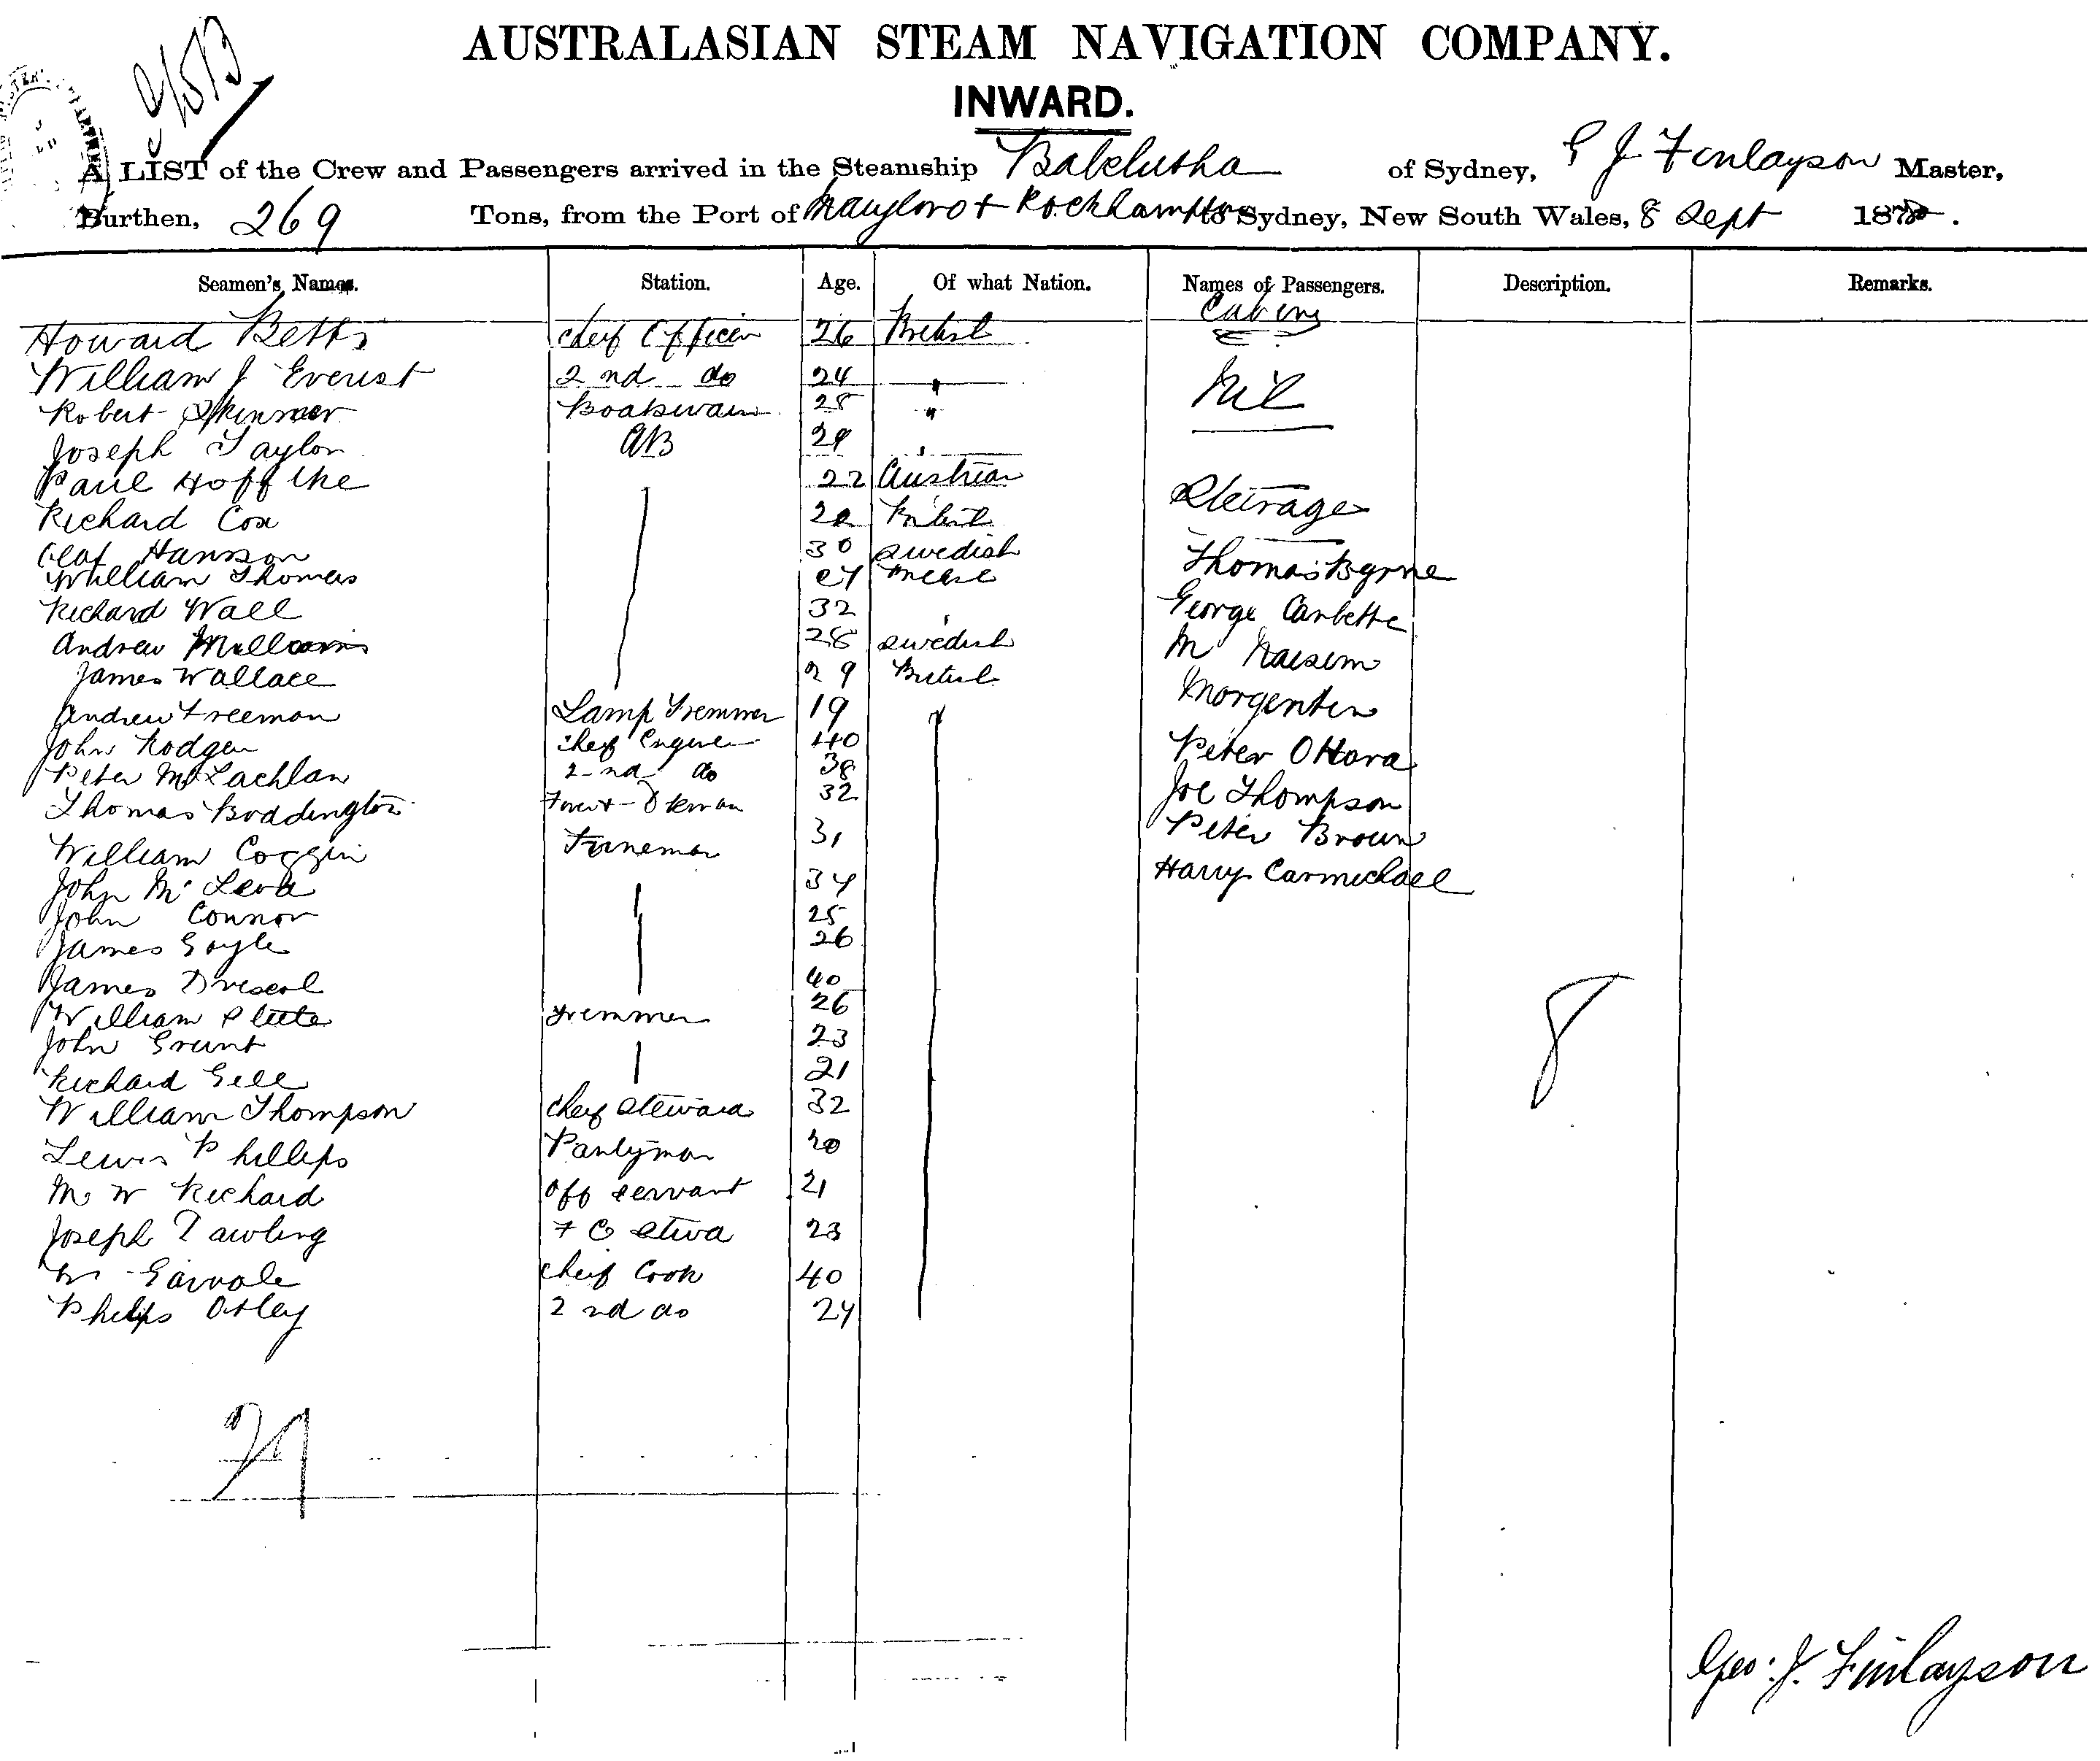 AUSTRALASIAN STEAM NAVIGATION COMPANY.
INWARD.
A LIST of the Crew and Passengers arrived in the Steamship Balclutha of Sydney, G J Finlayson Master,
Burthen, 269 Tons, from the Port of Rockhampton to Sydney, New South Wales, 8 Sept 187
Seamen's Names. Station. Age. Of what Nation. Names of Passengers. Description. Remarks.
Cabins
Howard Betts cheif Officer 26 British
William J Everist 2nd do 24 "
Nil
Robert Skinner Boatswain 28 "
Joseph Taylor AB 29 "
Paul Hoffthe 22 Austrian
Steirage
Richard Cox British
Olaf Hanson 30 Swedish
William Thomas 27 British
Thomas Byrne
Richard Wall 32 "
George Carbette
Andrew 28 Swedish
M
James Wallace 29 British
Andrew Freeman Lamp Tremmer 19 "
Morgenten
John Rodger cheif Engineer 40
Peter McLachlan 2nd do 38
Peter O Hara
Thomas Boddington 32
Joe Thompson
William Coggin Fireman 31
Peter Brown
John Mc 34
Harry Carmichael
John Connor 25
James Goyle 26
James Driscol 40
William Tremmer 26
John Grunt 23
8
Richard Gell 21
William Thompson cheif Steward 32
Lewis Phillips Pantryman 20
M W Richard Off servant 21
Joseph Tawling F C Stwd 23
cheif Cook 40
Phelps Otley 2nd do 24
29
Geo: J. Finlayson